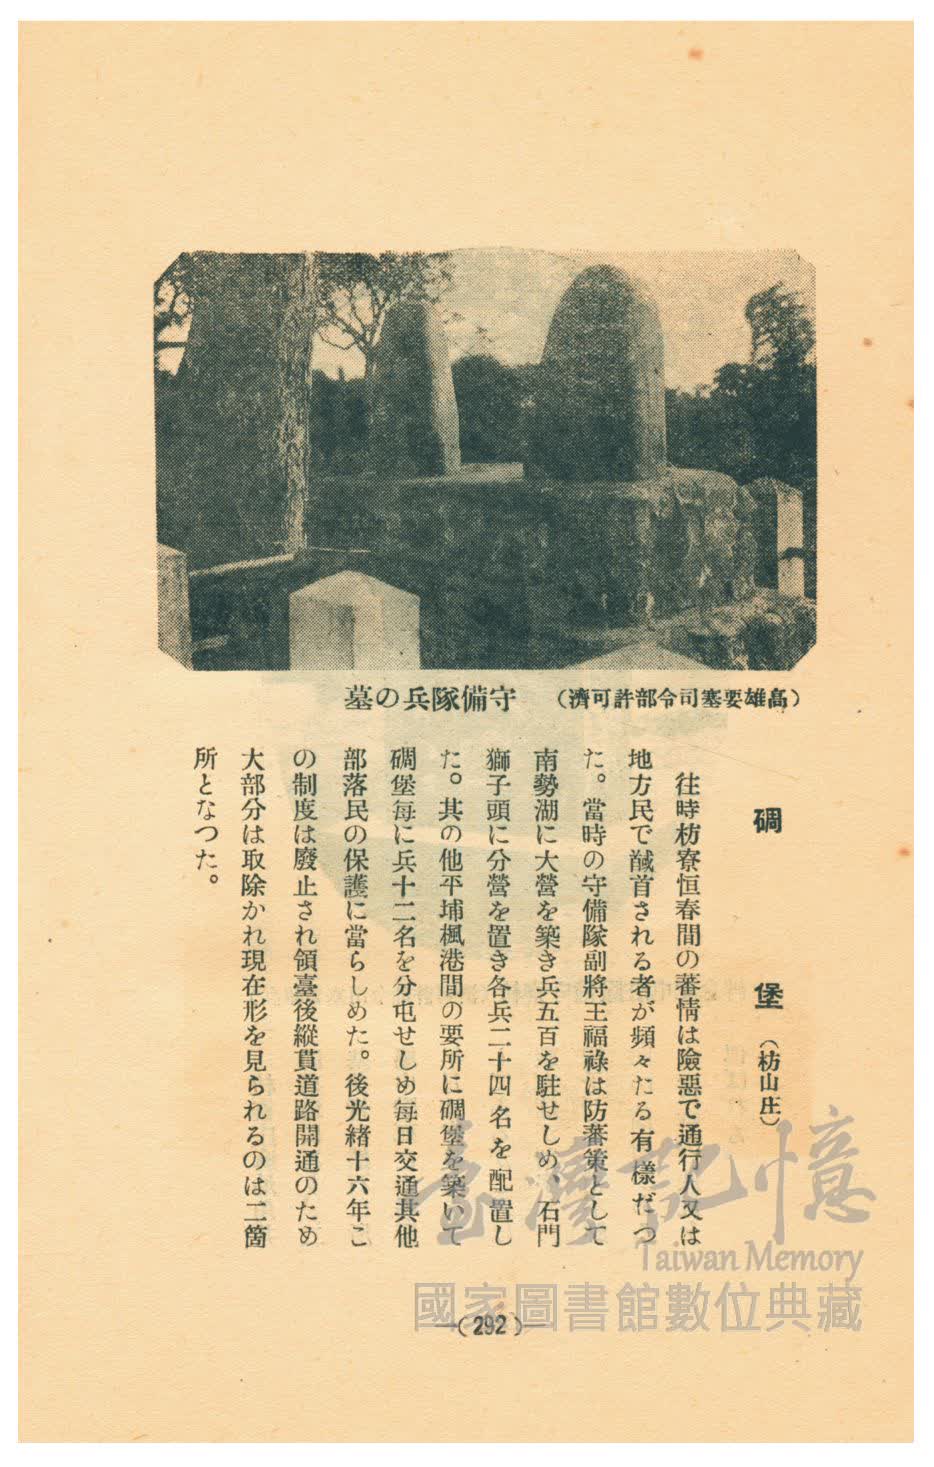 守備隊兵の墓 (高雄要塞司令部許可濟)
碉堡 (枋山庄)
往時枋寮恒春間の蕃情は險惡で通行人又は
地方民で馘首される者が頻々たる有樣だつ
た。當時の守備隊副將王福祿は防蕃策として
南勢湖に大營を築き兵五百を駐せしめ、石門
獅子頭に分營を置き各兵二十四名を配置し
た。其の他平埔楓港間の要所に碉堡を築いて
碉堡每に兵十二名を分屯せしめ每日交通其他
部落民の保護に當らしめた。後光緒十六年こ
の制度は廢止され領臺後縱貫道路開通のため
大部分は取除かれ現在形を見られるのは二箇
所となつた。
—(292)—
臺灣記憶
Taiwan Memory
國家圖書館數位典藏